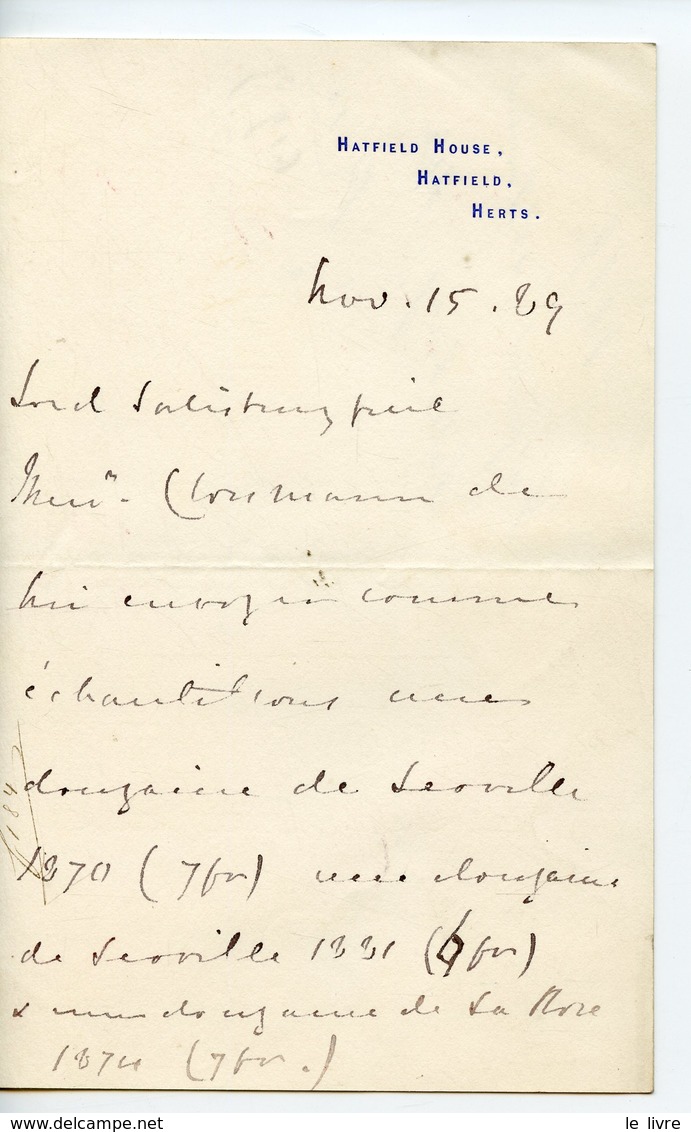 HATFIELD HOUSE,
HATFIELD,
HERTS.
Nov. 15. 89
Lord Salisbury prie
Clossmann de
lui envoyer comme
échantillons une
douzaine de Leoville
1870 (7 fr) une douzaine
de Leoville 1881 (6 fr)
& une douzaine de La Rose
1874 (7 fr.)
le livre